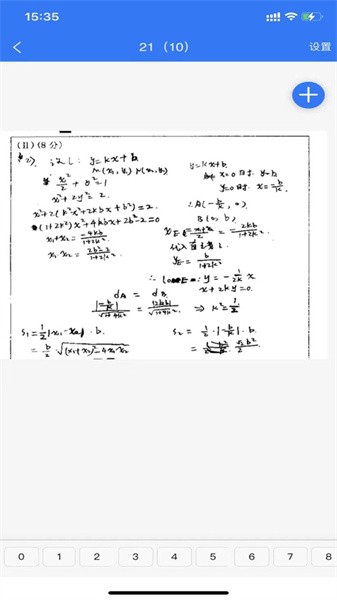 15:35
21（10）
设置
(II) (8分)
(2) 设 l: y=kx+b
M(x₁,y₁) N(x₂,y₂)
x²/2 + y² = 1
x²+2y²=2
x²+2(k²x²+2kbx+b²)=2
(1+2k²)x²+4kbx+2b²-2=0
x₁+x₂ = -4kb/1+2k²
x₁·x₂ = 2b²-2/1+2k²
y=kx+b
x=0时 y=b
y=0时 x=-b/k
∴A(-b/k, 0)
B(0, b)
x_E = x₁+x₂/2 = -2kb/1+2k²
y_E = b/1+2k²
y = -1/2k x
x+2ky=0
d_A = d_B
= |2kb|/√1+4k² ⇒ k²=1/2
S₁=1/2|x₁-x₂|·b
= b/2 √(x₁+x₂)²-4x₁x₂
S₂ = 1/2·|-b/k|·b
0 1 2 3 4 5 6 7 8